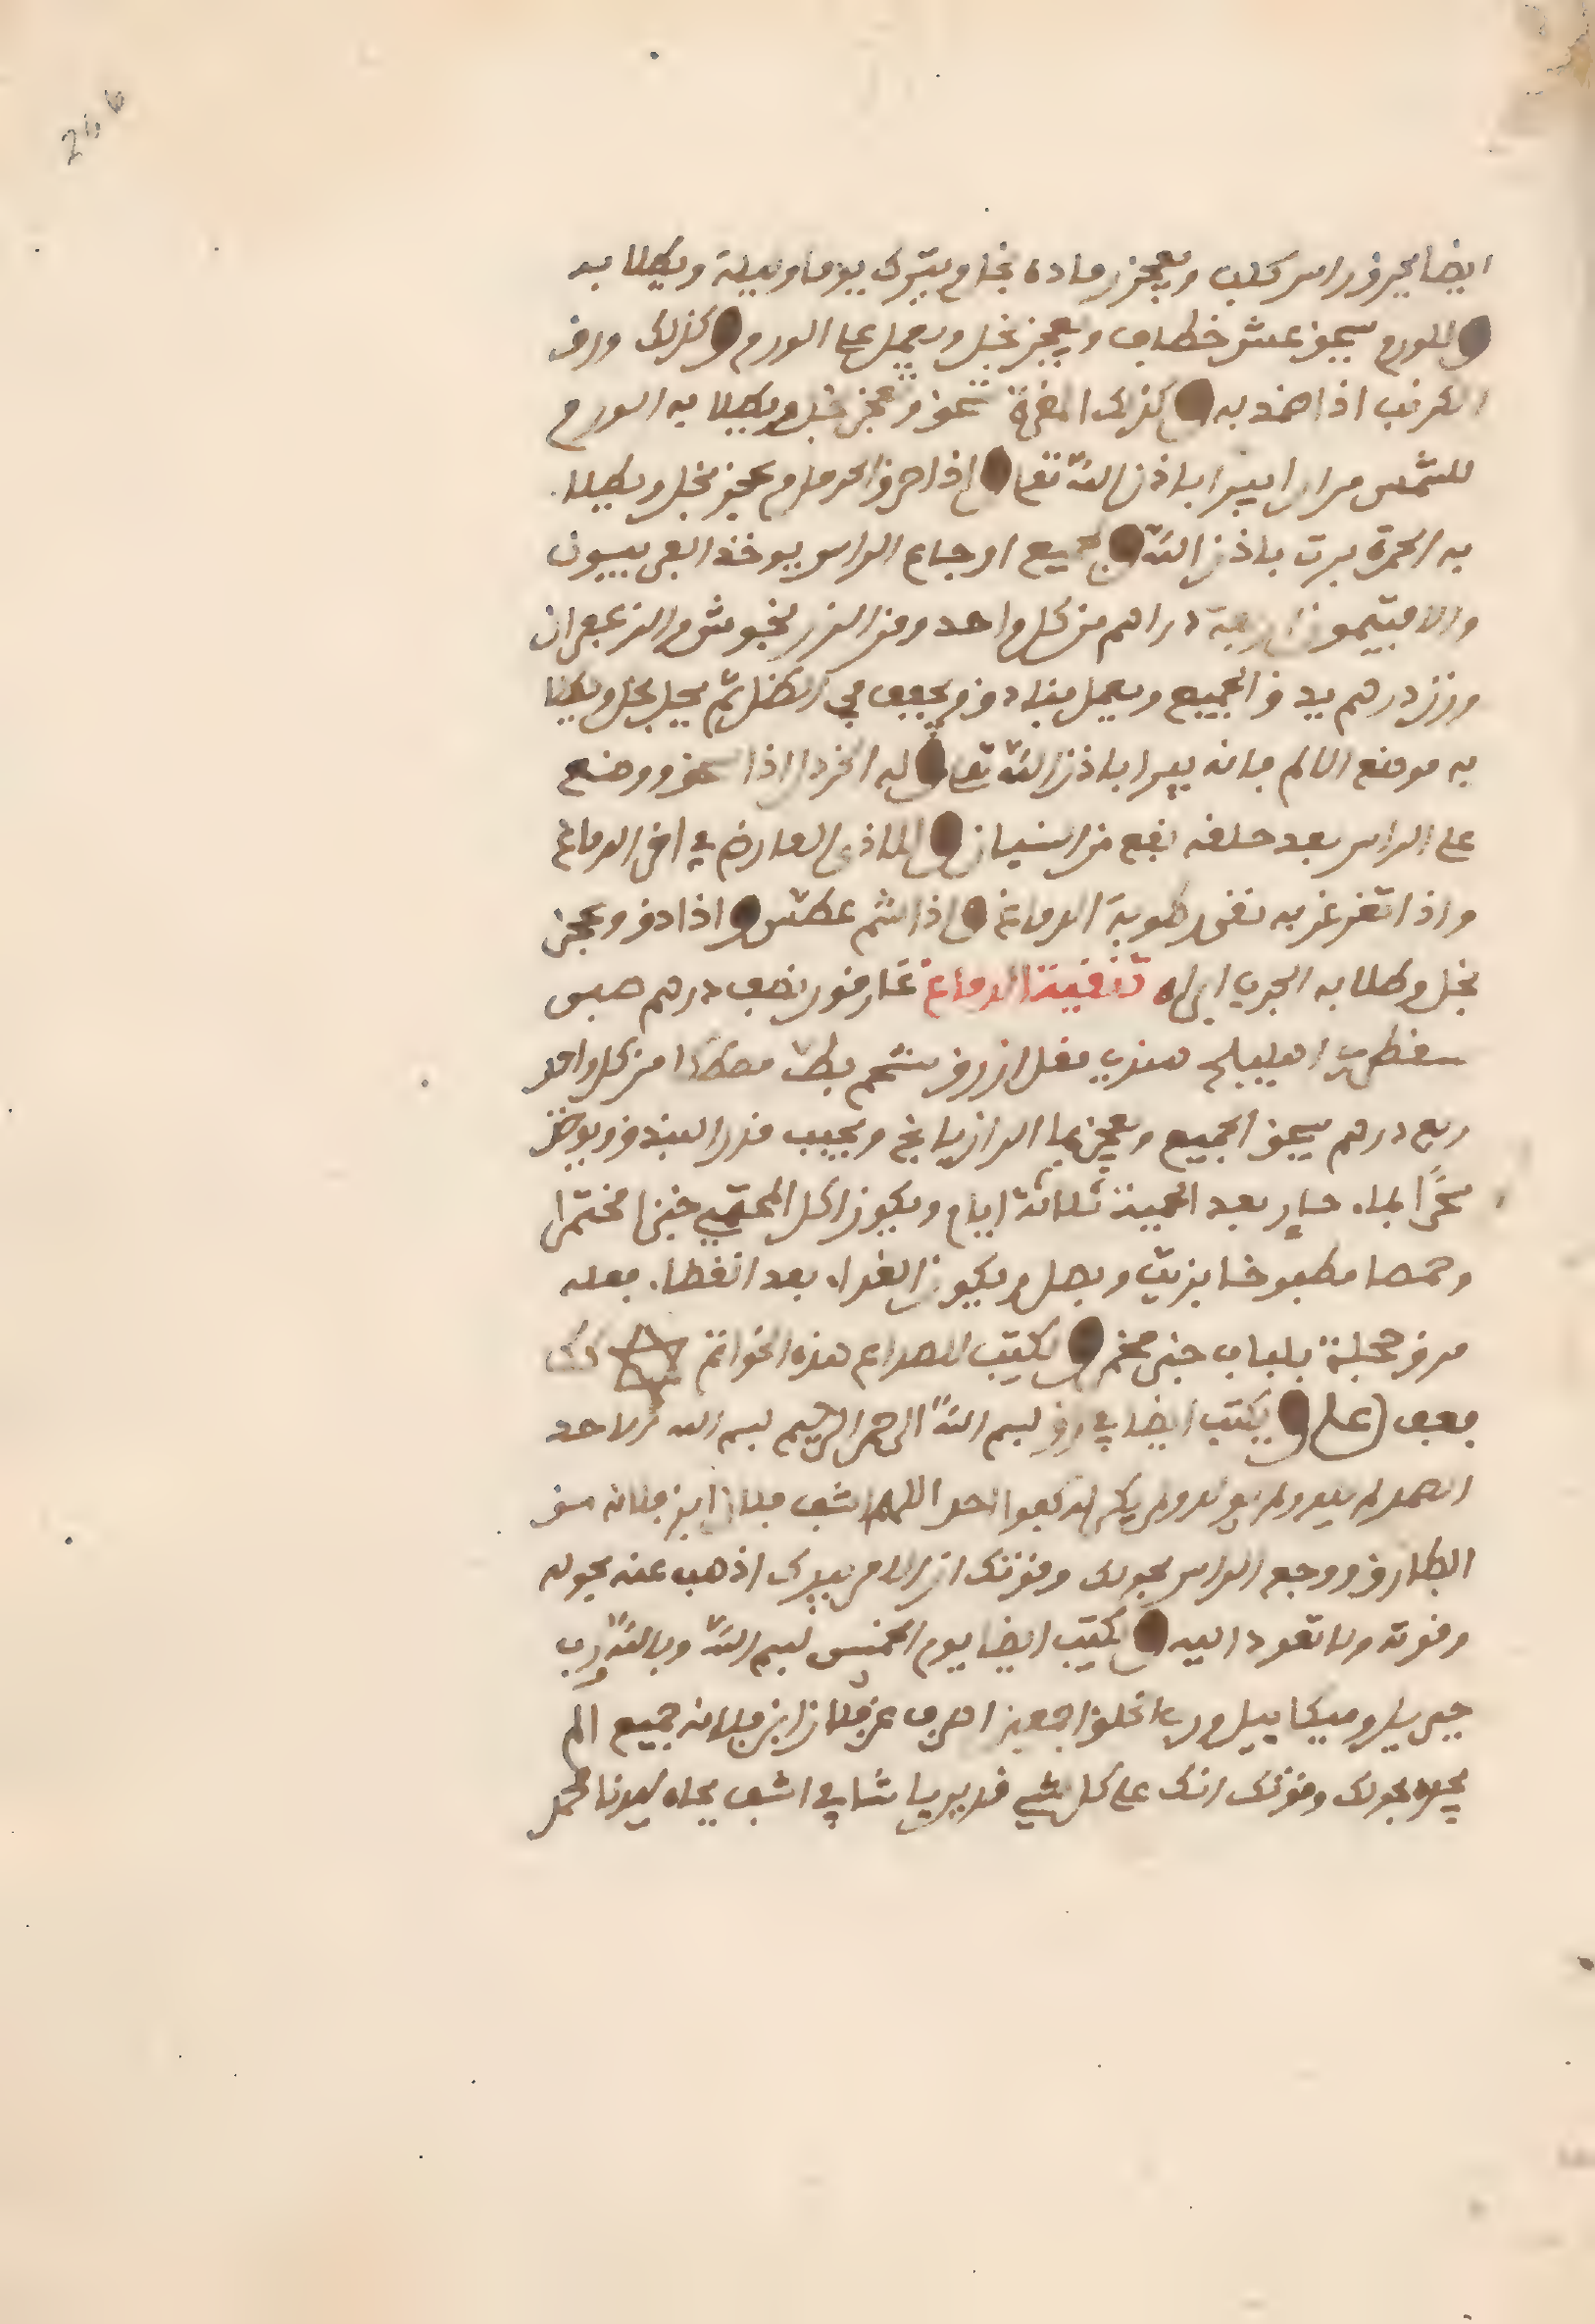 ايضا يحرق راس كلب ويعجن رماده بخل ويترك يوما وليلة ويطلا به
وللورم يسحق عش خطاف ويعجن بخل ويحمل على الورم وكذلك ورق
الكرنب اذا ضمد به وكذلك المغرة تسحق وتعجن بخل ويطلا به الورم
للشمس مرارا يبرا باذن الله تعلى واذا احرق الحرمل وعجن بخل ويطلا
به الحمرة برت باذن الله ولجميع اوجاع الراس يوخذ الفربيون
والافتيمون اربعة دراهم من كل واحد ومن الزرنخوش والزعفران
وزن درهم يدق الجميع ويعمل بنادق ويجفف في الظل ثم يحل بخل ويطلا
به موضع الالم فانه يبرا باذن الله تعلى وله الخردل اذا سحق ووضع
على الراس بعد حلقه نفع من النسيان والماذى العارض في اقى الدماغ
واذا تغرغر به نقى رطوبة الدماغ واذا شم عطش واذا دق وعجن
بخل وطلا به الجرب ابراه تنقية الدماغ غارقون نصف درهم صبر
سقطري اهليلج هندي مقل ازرق شحم مصطكا من كل واحد
ربع درهم يسحق الجميع ويعجن بما الرازيانج ويحبب قدر البندق ويوخذ
سحرا بماء حار بعد الحمية ثلاثة ايام ويكون اكل المحتمي خبزا مختمرا
وحمصا مطبوخا بزيت وبصل ويكون الغداء بعد انقطاء فعله
مرق حجلة بلباب خبز مخمر ويكتب للصداع هذه الخواتم
ويكتب ايضا في رق بسم الله الرحمن الرحيم بسم الله الاحد
الصمد لم يلد ولم يولد ولم يكن له كفوا احد اللهم اشف فلان ابن فلانه من
الطارق ووجع الراس بحولك وقوتك ان الامر بيدك اذهب عنه بحوله
وقوته ولا تعود اليه ويكتب ايضا يوم الخميس بسم الله وبالله رب
جبريل وميكاييل ورب الخلق اجمعين اصرف عن فلان ابن فلانه جميع الم
يجده بحولك وقوتك انك على كل شي قدير يا شافي اشف بجاه سيدنا محمد